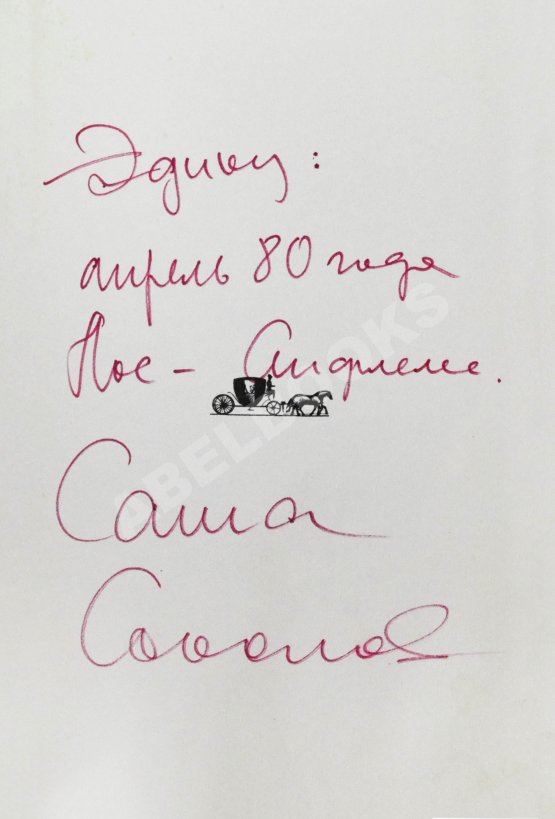 Эдику:
апрель 80 года
Лос-Анджелес.
Саша
Соколов
ABELBOOKS